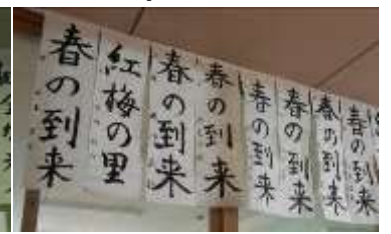 春の到来
紅梅の里
春の到来
春の到来
春の到来
春の到来
春の到来
春の到来